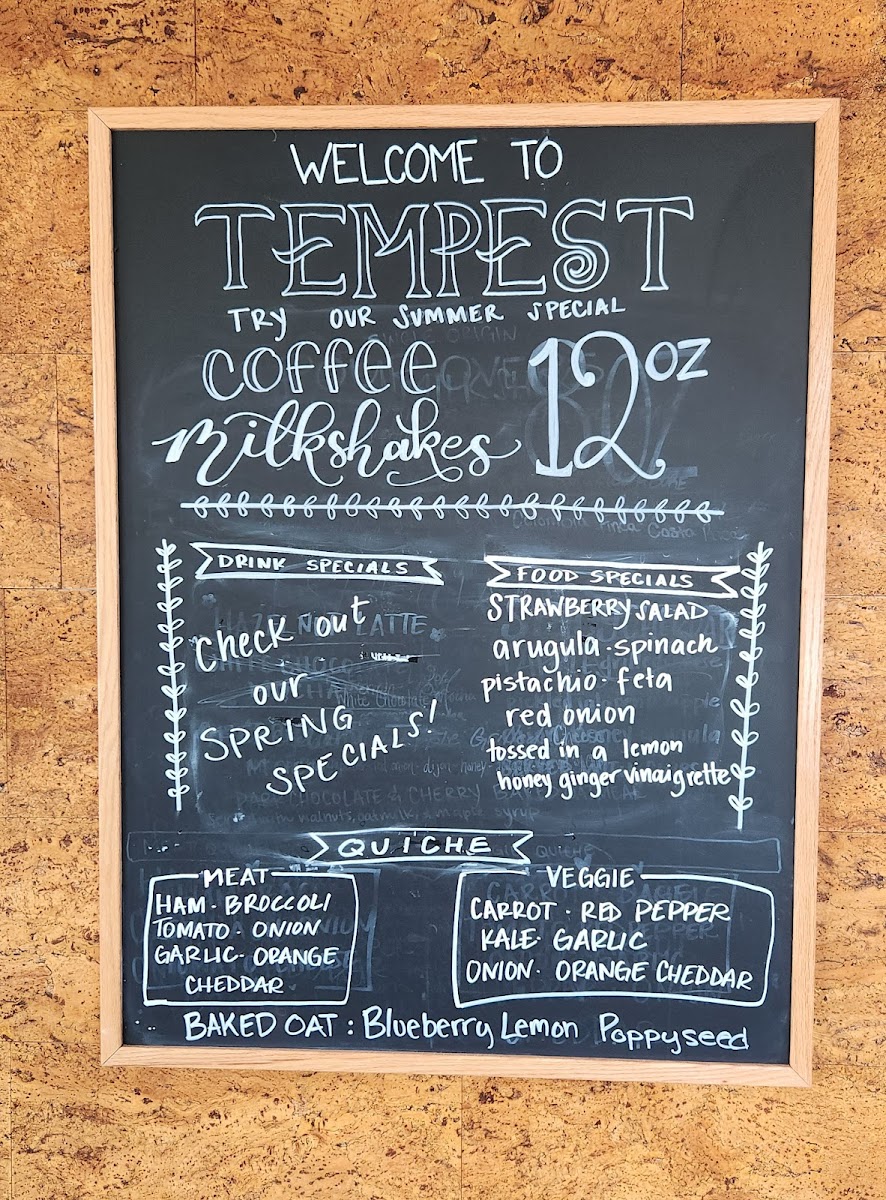 WELCOME TO
TEMPEST
TRY OUR SUMMER SPECIAL
coffee
milkshakes
12 oz
DRINK SPECIALS
Check out
our
SPRING
SPECIALS!
FOOD SPECIALS
STRAWBERRY SALAD
arugula · spinach
pistachio · feta
red onion
tossed in a lemon
honey ginger vinaigrette
QUICHE
MEAT
HAM · BROCCOLI
TOMATO · ONION
GARLIC · ORANGE
CHEDDAR
VEGGIE
CARROT · RED PEPPER
KALE · GARLIC
ONION · ORANGE CHEDDAR
BAKED OAT : Blueberry Lemon Poppyseed